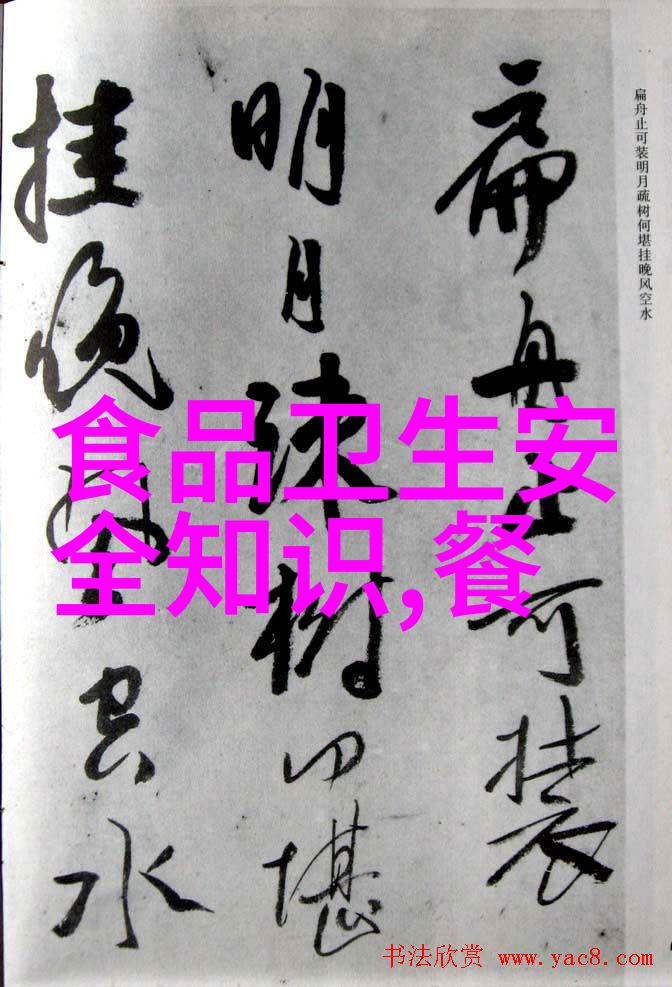 扁舟止可装
明月疏树何堪
挂晚风空水
扁舟止可装明月疏树何堪挂晚风空水
食品卫生安
全知识,餐
书法欣赏 www.yac8.com